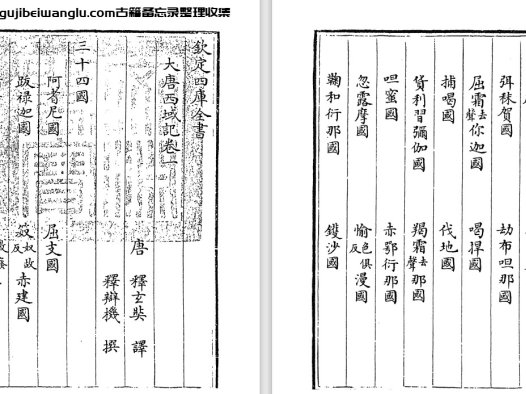 gujibeiwanglu.com古籍备忘录整理收集
欽定四庫全書
大唐西域記卷一
唐 釋玄奘 譯
釋辯機 撰
三十四國
阿耆尼國 屈支國
跋祿迦國 笯奴故反赤建國
弭秣賀國 劫布呾那國
屈霜去聲你迦國 喝捍國
捕喝國 伐地國
貨利習彌伽國 羯霜去聲那國
呾蜜國 赤鄂衍那國
忽露摩國 愉色俱反漫國
鞠和衍那國 鑊沙國